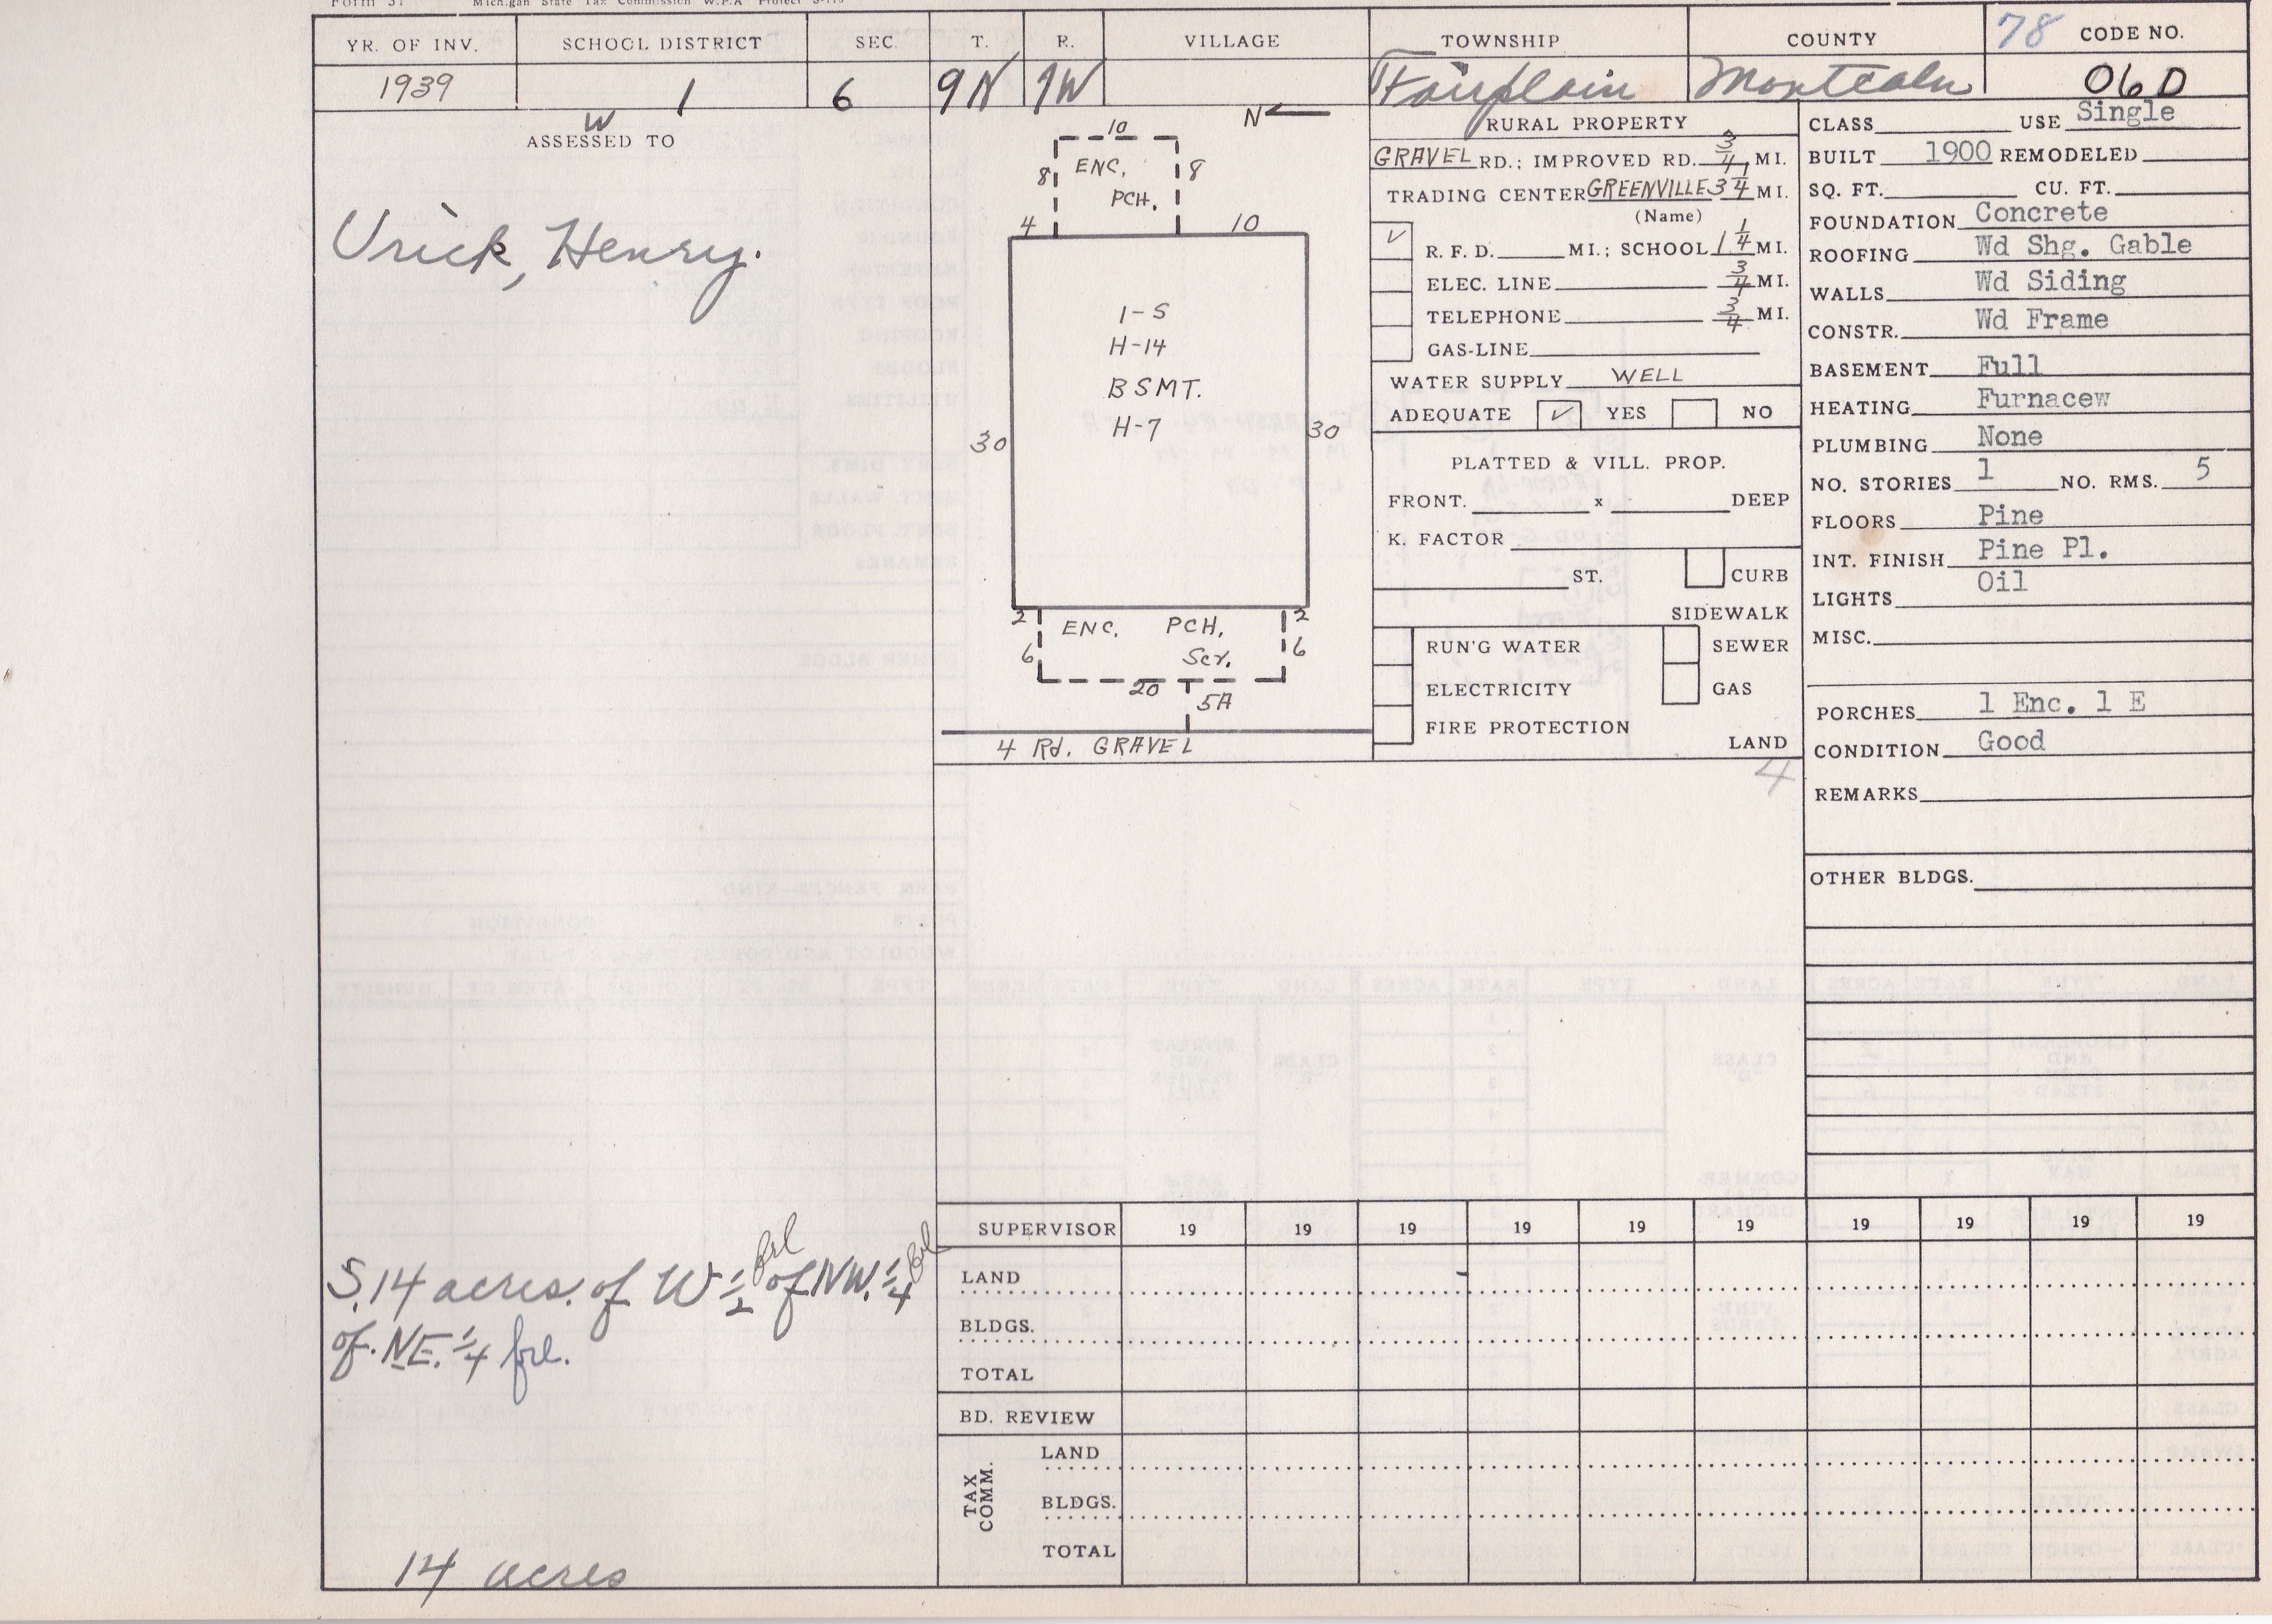 Form 31 Michigan State Tax Commission W.P.A Project S-113
YR. OF INV. SCHOOL DISTRICT SEC. T. R. VILLAGE TOWNSHIP COUNTY 78 CODE NO.
1939 1 6 9N 7W Fairplain Montcalm 06D
W
ASSESSED TO
Urick, Henry.
S. 14 acres. of W 1/2 frl of NW. 1/4 frl
of. NE. 1/4 frl.
14 acres
N
10
8 ENC. 8
PCH.
4 10
1-S
H-14
BSMT.
H-7
30 30
2 ENC. PCH. 2
6 Scr. 6
20 5A
4 Rd. GRAVEL
RURAL PROPERTY
GRAVEL RD.; IMPROVED RD. 3/4 MI.
TRADING CENTER GREENVILLE 3 1/4 MI.
(Name)
✓ R. F. D. MI.; SCHOOL 1 1/4 MI.
ELEC. LINE 3/4 MI.
TELEPHONE 3/4 MI.
GAS-LINE
WATER SUPPLY WELL
ADEQUATE ✓ YES NO
PLATTED & VILL. PROP.
FRONT. x DEEP
K. FACTOR
ST. CURB
SIDEWALK
RUN'G WATER SEWER
ELECTRICITY GAS
FIRE PROTECTION
LAND
4
CLASS USE Single
BUILT 1900 REMODELED
SQ. FT. CU. FT.
FOUNDATION Concrete
ROOFING Wd Shg. Gable
WALLS Wd Siding
CONSTR. Wd Frame
BASEMENT Full
HEATING Furnacew
PLUMBING None
NO. STORIES 1 NO. RMS. 5
FLOORS Pine
INT. FINISH Pine Pl.
LIGHTS Oil
MISC.
PORCHES 1 Enc. 1 E
CONDITION Good
REMARKS
OTHER BLDGS.
SUPERVISOR 19 19 19 19 19 19 19 19 19 19
LAND
BLDGS.
TOTAL
BD. REVIEW
TAX COMM.
LAND
BLDGS.
TOTAL